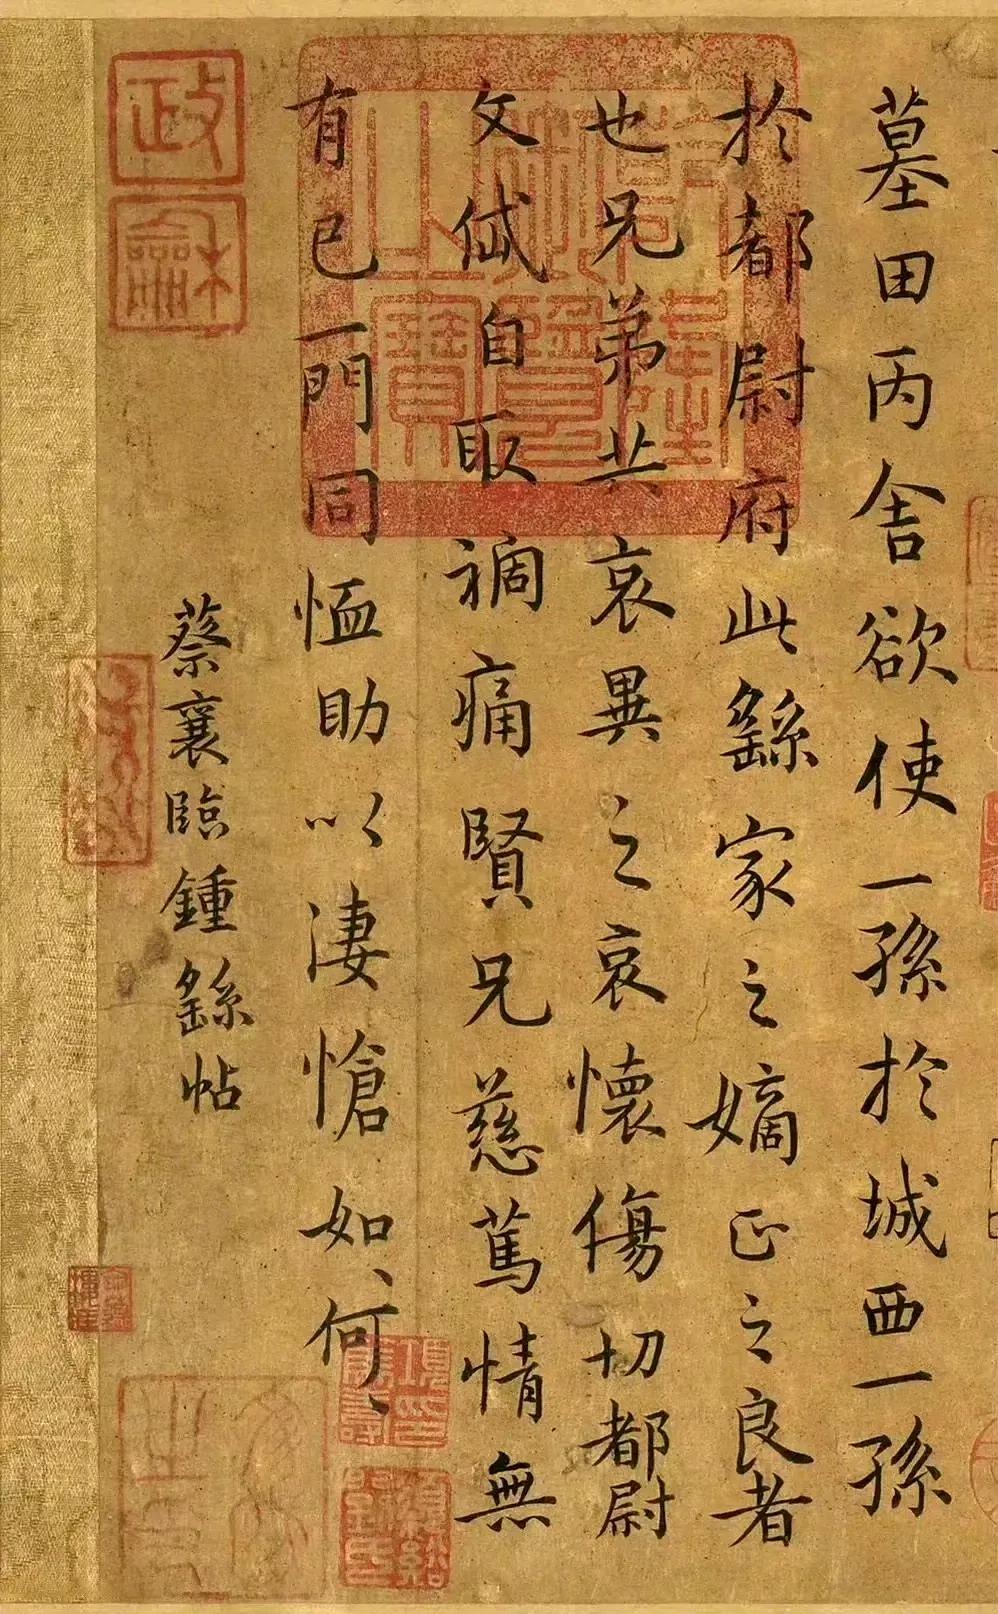 墓田丙舍欲使一孫於城西一孫
於都尉府此繇家之嫡正之良者
也兄弟共哀異之哀懷傷切都尉
文岱自取禍痛賢兄慈篤情無
有已一門同恤助以淒愴如、何、
蔡襄臨鍾繇帖
乾隆御覽之寶
政
龢